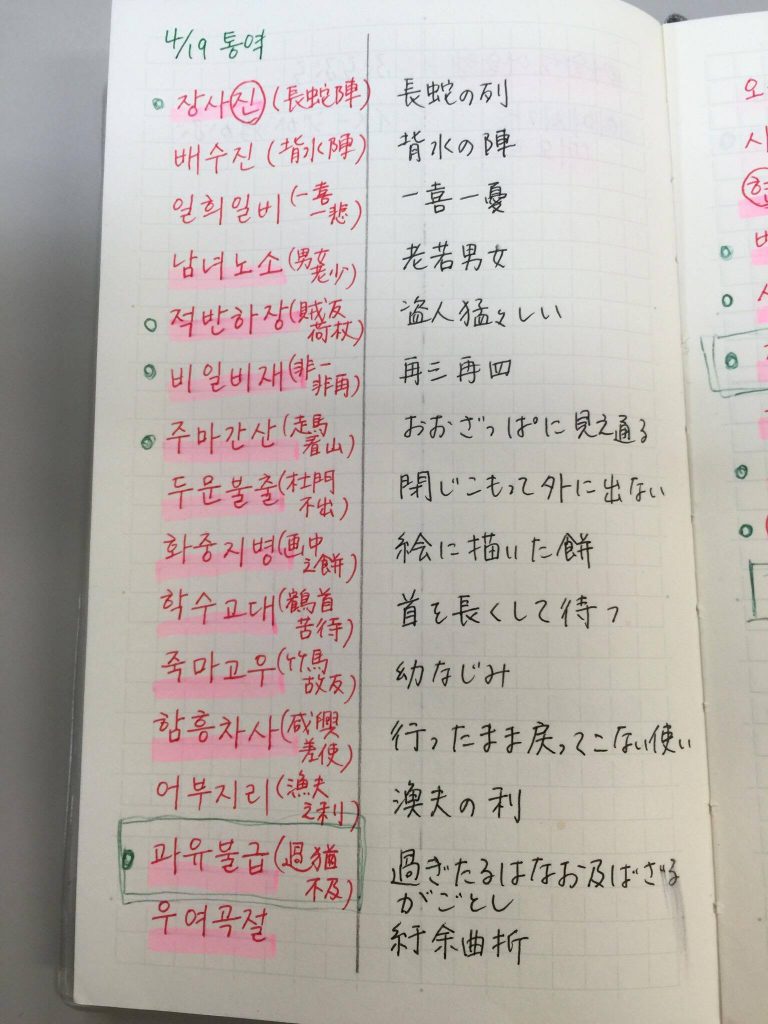 4/19 통역
장사진 (長蛇陣) 長蛇の列
배수진 (背水陣) 背水の陣
일희일비 (一喜一悲) 一喜一憂
남녀노소 (男女老少) 老若男女
적반하장 (賊反荷杖) 盗人猛々しい
비일비재 (非一非再) 再三再四
주마간산 (走馬看山) おおざっぱに見え通る
두문불출 (杜門不出) 閉じこもって外に出ない
화중지병 (画中之餅) 絵に描いた餅
학수고대 (鶴首苦待) 首を長くして待つ
죽마고우 (竹馬故友) 幼なじみ
함흥차사 (咸興差使) 行ったまま戻ってこない使い
어부지리 (漁夫之利) 漁夫の利
과유불급 (過猶不及) 過ぎたるはなお及ばざる
がごとし
우여곡절 紆余曲折
오
시
현